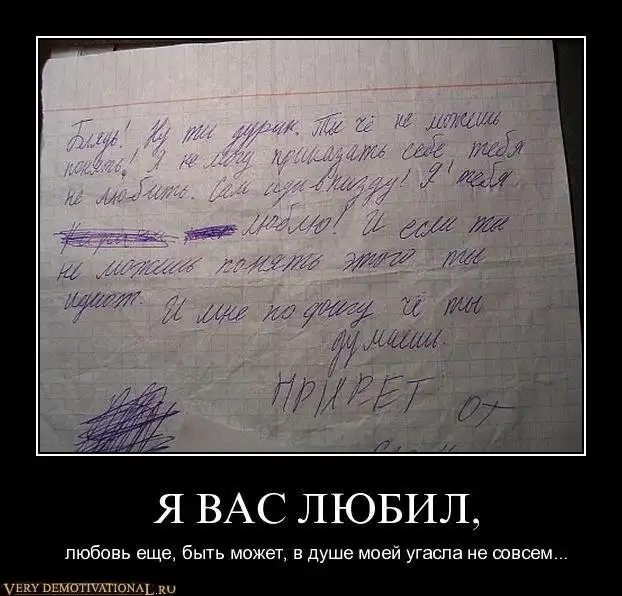 Блядь! Ну ты дурак. Ты чё не можешь
понять! Я не могу приказать себе тебя
не любить. Сам иди в пизду! Я! тебя
люблю! И если ты
не можешь понять этого ты
идиот. И мне по фигу чё ты
думаешь.
ПРИВЕТ от
Я ВАС ЛЮБИЛ,
любовь еще, быть может, в душе моей угасла не совсем...
VERY DEMOTIVATIONAL.RU